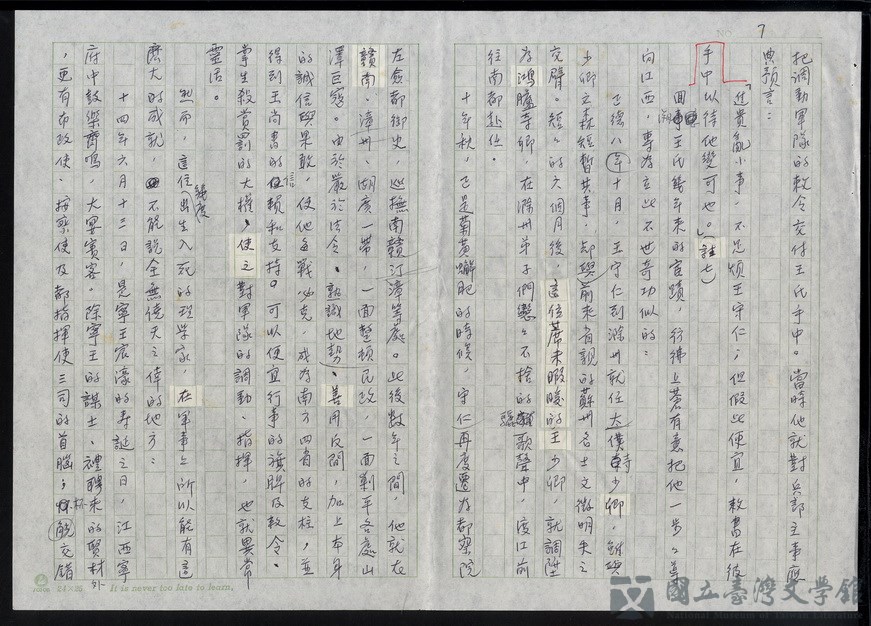 7
把調動軍隊的敕令交付王氏手中。當時他就對兵部主事應
典預言：
「這貴亂小事，不足煩王守仁；但假此便宜，敕書在彼
手中以待他變可也。」（註七）
回王氏幾年來的官蹟，彷彿上蒼有意把他一步々導
向江西，專為立此不世奇功似的：
正德八年十月，王守仁到滁州就位太僕寺少卿，
少卿之森經暫共事，却與前來省親的蘇州名士文徵明失之
交臂。短々的六個月後，這位蓆未暇暖的王少卿，就調陞
為鴻臚寺卿，在滁州弟子們戀々不捨的驪歌聲中，渡江前
往南都赴任。
十年秋，正是菊黃蠏肥的時候，守仁再度遷為都察院
左僉都御史，巡撫南贛汀漳等處。此後數年之間，他就在
贛南、漳州、湖廣一帶，一面整頓民政，一面剿平各處山
澤巨寇。由於嚴於法令、熟識地勢、善用反間，加上本身
的誠信與果敢，使他每戰必克，成為南方四省的支柱，並
得到王尚書的信賴和支持。可以便宜行事的旗牌及敕令、
掌生殺賞罰的大權，使之對軍隊的調動、指揮，也就異常
靈活。
然而，這位幾度出生入死的理學家，在軍事上所以能有這
麼大的成就，不能說全無僥天之倖的地方：
十四年六月十三日，是寧王宸濠的壽誕之日，江西寧
府中鼓樂齊鳴，大宴賓客。除寧王的謀士、禮聘來的賢材外
，更有布政使、按察使及都指揮使三司的首腦，杯觥交錯
24×25 It is never too late to learn.
國立臺灣文學館
National Museum of Taiwan Literature